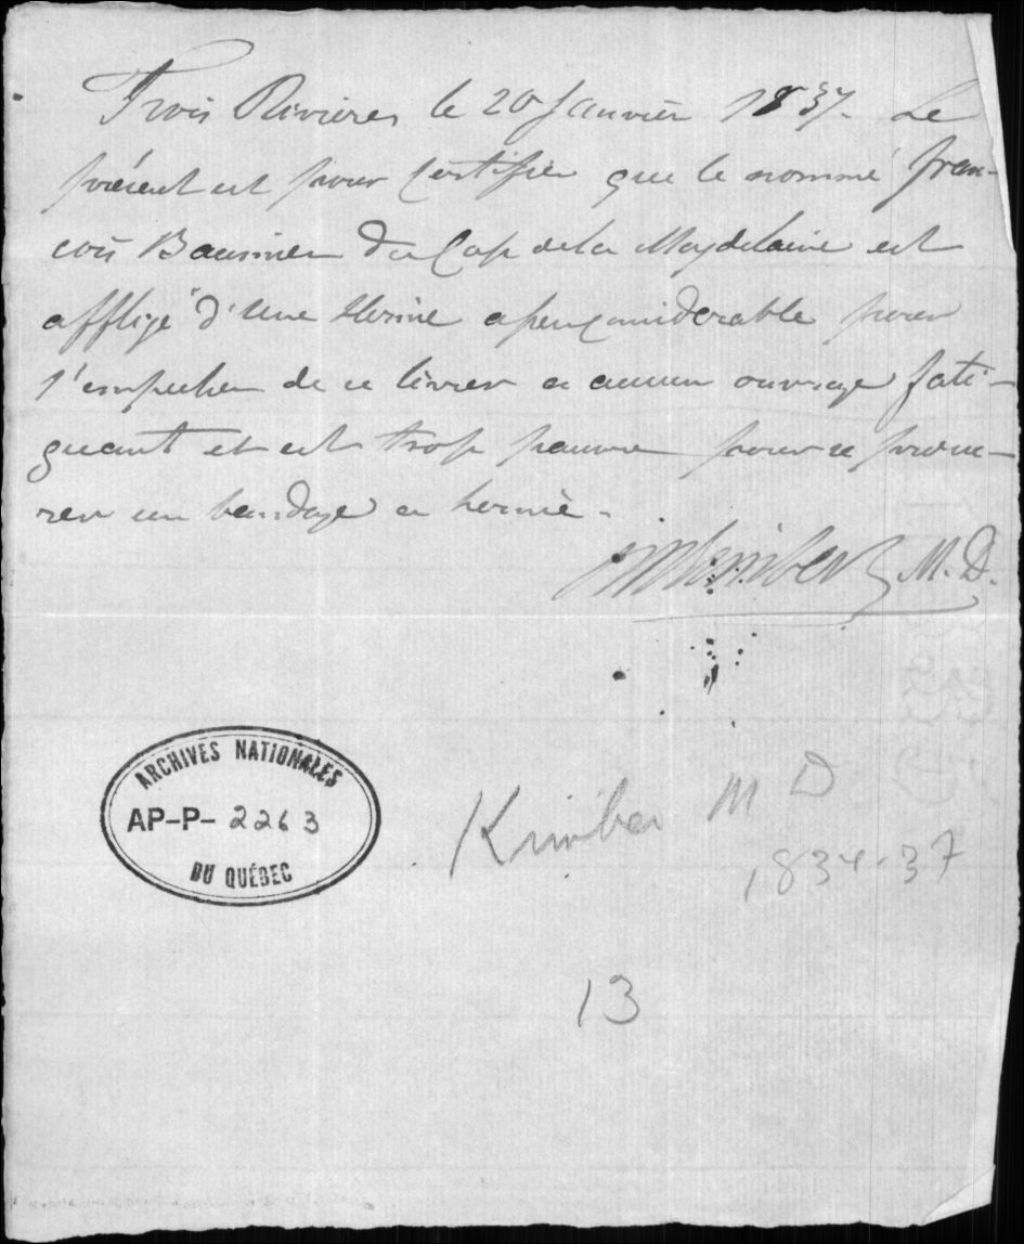 Trois Rivieres le 20 Janvier 1837. Le
présent est pour certifier que le nommé Fran-
cois du Cap de la Magdelaine est
affligé d'une Hernie asseuz considerable pour
l'empecher de ce livrer a aucun ouvrage fati-
guant et est trop pauvre pour ce procu-
rer un bandage a hernie.
Kimber M.D.
ARCHIVES NATIONALES
AP-P-2263
DU QUÉBEC
Kimber M D
1834-37
13